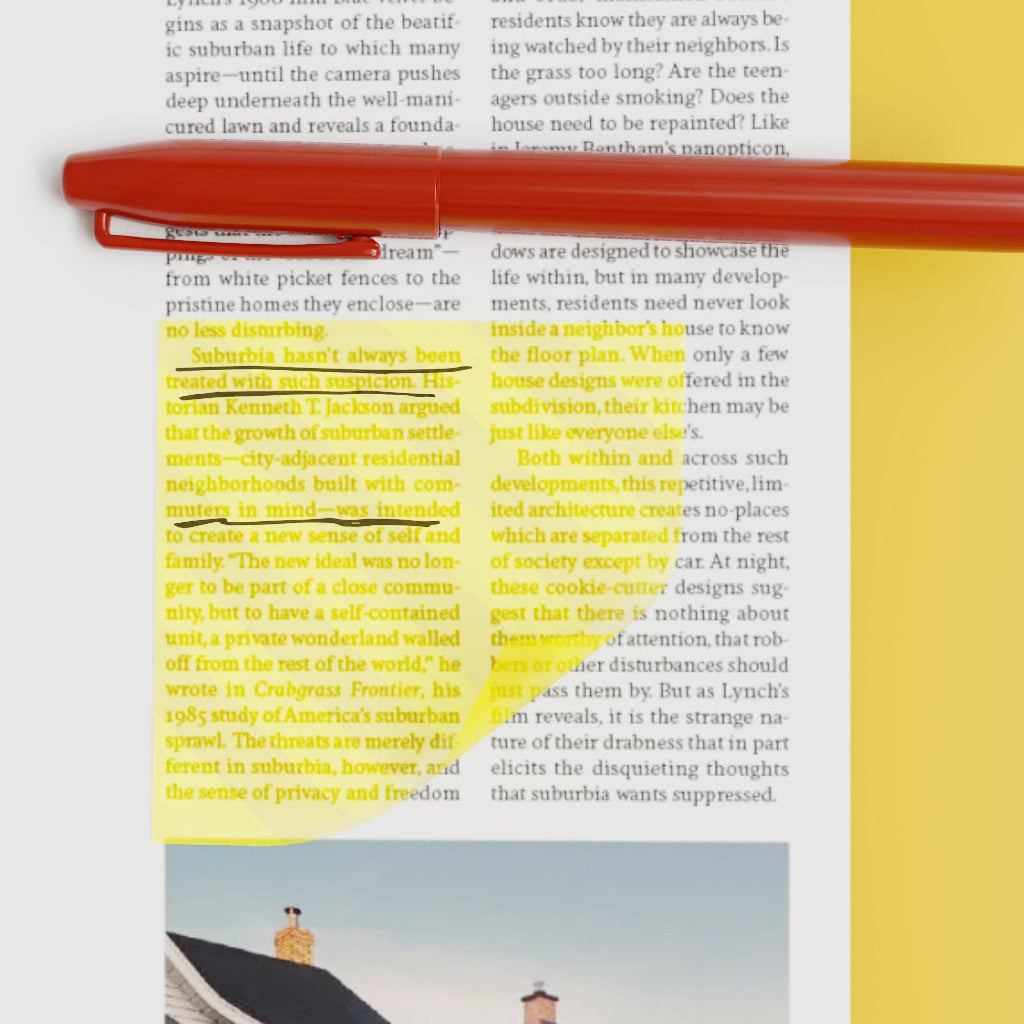 Lynch's 1986 film Blue Velvet be-
gins as a snapshot of the beatif-
ic suburban life to which many
aspire—until the camera pushes
deep underneath the well-mani-
cured lawn and reveals a founda-
gests that the
pings of the dream"—
from white picket fences to the
pristine homes they enclose—are
no less disturbing.
Suburbia hasn't always been
treated with such suspicion. His-
torian Kenneth T. Jackson argued
that the growth of suburban settle-
ments—city-adjacent residential
neighborhoods built with com-
muters in mind—was intended
to create a new sense of self and
family. "The new ideal was no lon-
ger to be part of a close commu-
nity, but to have a self-contained
unit, a private wonderland walled
off from the rest of the world," he
wrote in Crabgrass Frontier, his
1985 study of America's suburban
sprawl. The threats are merely dif-
ferent in suburbia, however, and
the sense of privacy and freedom
residents know they are always be-
ing watched by their neighbors. Is
the grass too long? Are the teen-
agers outside smoking? Does the
house need to be repainted? Like
in Jeremy Bentham's panopticon,
dows are designed to showcase the
life within, but in many develop-
ments, residents need never look
inside a neighbor's house to know
the floor plan. When only a few
house designs were offered in the
subdivision, their kitchen may be
just like everyone else's.
Both within and across such
developments, this repetitive, lim-
ited architecture creates no-places
which are separated from the rest
of society except by car. At night,
these cookie-cutter designs sug-
gest that there is nothing about
them worthy of attention, that rob-
bers or other disturbances should
just pass them by. But as Lynch's
film reveals, it is the strange na-
ture of their drabness that in part
elicits the disquieting thoughts
that suburbia wants suppressed.